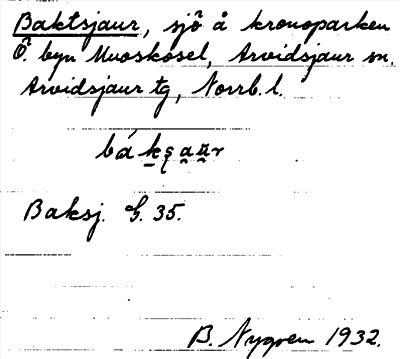 Baktsjaur, sjö å kronoparken
Ö. byn Muoskosel, Arvidsjaur sn.
Arvidsjaur tg, Norrb. l.
Baksj. G. 35.
B. Nygren 1932.